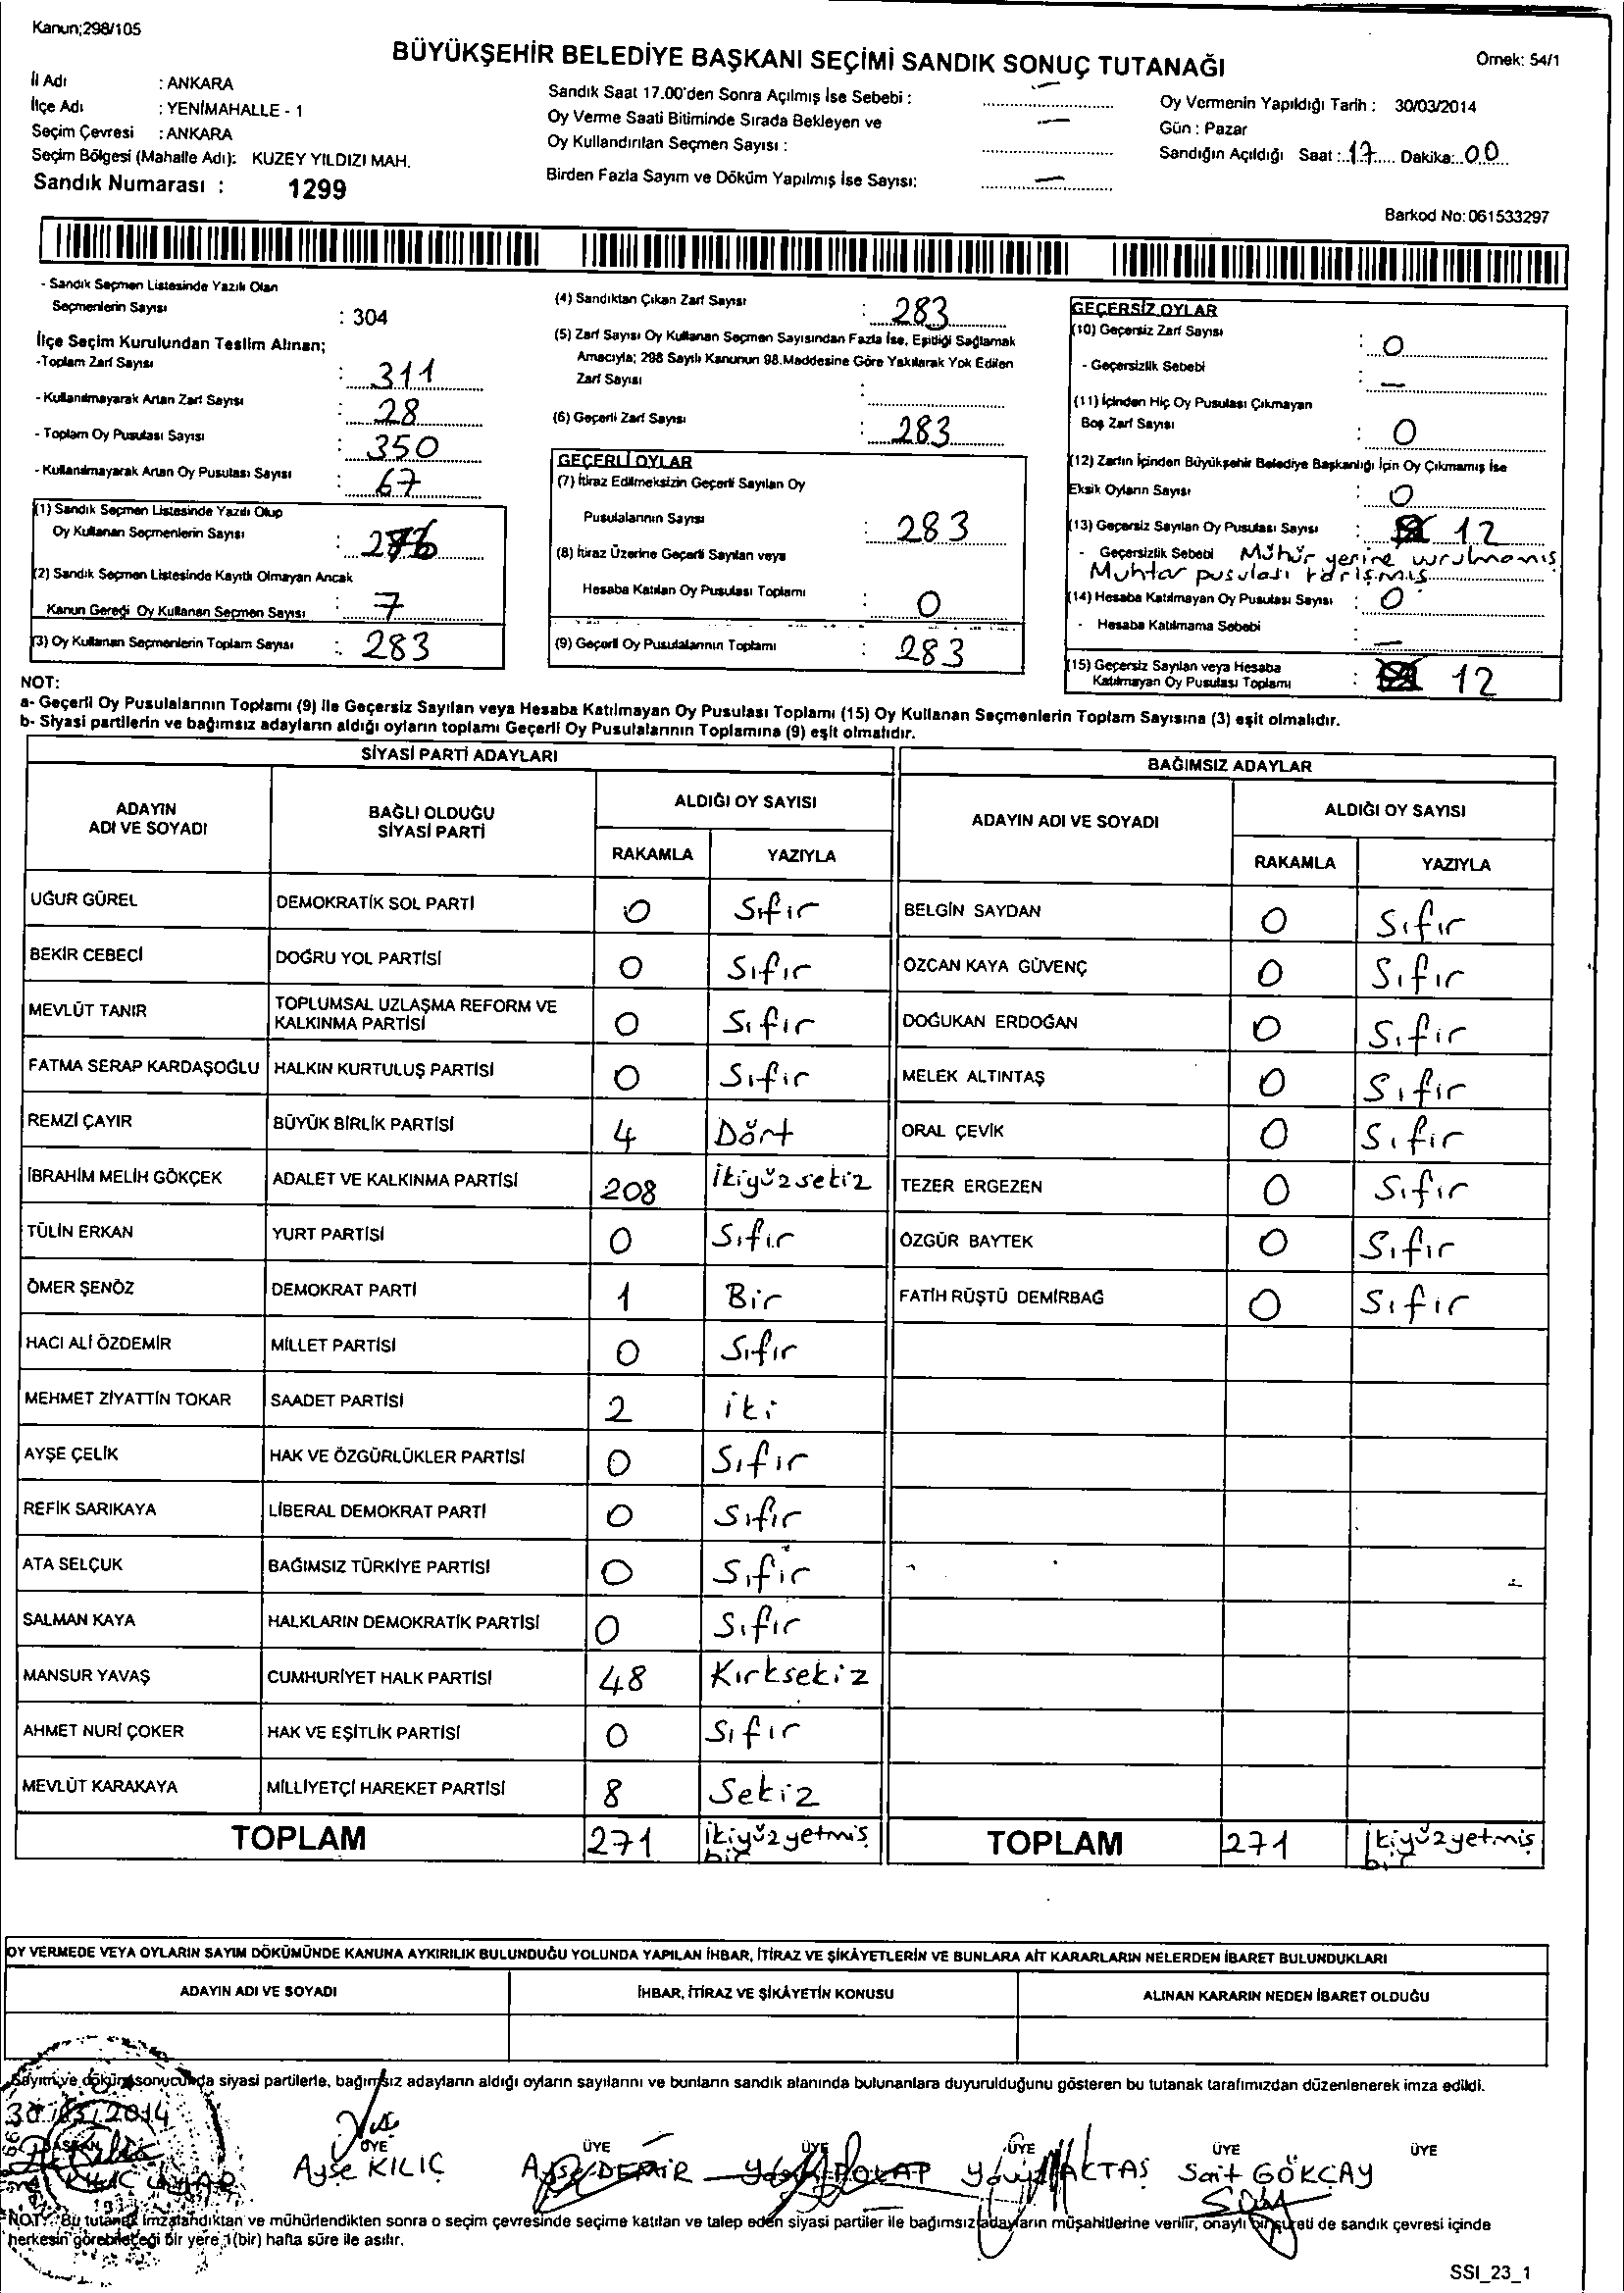 Kanun;298/105
BÜYÜKŞEHİR BELEDİYE BAŞKANI SEÇİMİ SANDIK SONUÇ TUTANAĞI
Örnek: 54/1
İl Adı : ANKARA
İlçe Adı : YENİMAHALLE - 1
Seçim Çevresi : ANKARA
Seçim Bölgesi (Mahalle Adı): KUZEY YILDIZI MAH.
Sandık Numarası : 1299
Sandık Saat 17.00'den Sonra Açılmış İse Sebebi : —
Oy Verme Saati Bitiminde Sırada Bekleyen ve
Oy Kullandırılan Seçmen Sayısı : —
Birden Fazla Sayım ve Döküm Yapılmış İse Sayısı: —
Oy Vermenin Yapıldığı Tarih : 30/03/2014
Gün : Pazar
Sandığın Açıldığı Saat : 17 Dakika: 00
Barkod No: 061533297
- Sandık Seçmen Listesinde Yazılı Olan
Seçmenlerin Sayısı : 304
İlçe Seçim Kurulundan Teslim Alınan;
-Toplam Zarf Sayısı : 311
- Kullanılmayarak Artan Zarf Sayısı : 28
- Toplam Oy Pusulası Sayısı : 350
- Kullanılmayarak Artan Oy Pusulası Sayısı : 67
(1) Sandık Seçmen Listesinde Yazılı Olup
Oy Kullanan Seçmenlerin Sayısı : 276
(2) Sandık Seçmen Listesinde Kayıtlı Olmayan Ancak
Kanun Gereği Oy Kullanan Seçmen Sayısı : 7
(3) Oy Kullanan Seçmenlerin Toplam Sayısı : 283
(4) Sandıktan Çıkan Zarf Sayısı : 283
(5) Zarf Sayısı Oy Kullanan Seçmen Sayısından Fazla İse, Eşitliği Sağlamak
Amacıyla; 298 Sayılı Kanunun 98.Maddesine Göre Yakılarak Yok Edilen
Zarf Sayısı :
(6) Geçerli Zarf Sayısı : 283
GEÇERLİ OYLAR
(7) İtiraz Edilmeksizin Geçerli Sayılan Oy
Pusulalarının Sayısı : 283
(8) İtiraz Üzerine Geçerli Sayılan veya
Hesaba Katılan Oy Pusulası Toplamı : 0
(9) Geçerli Oy Pusulalarının Toplamı : 283
GEÇERSİZ OYLAR
(10) Geçersiz Zarf Sayısı : 0
- Geçersizlik Sebebi : —
(11) İçinden Hiç Oy Pusulası Çıkmayan
Boş Zarf Sayısı : 0
(12) Zarfın İçinden Büyükşehir Belediye Başkanlığı İçin Oy Çıkmamış İse
Eksik Oyların Sayısı : 0
(13) Geçersiz Sayılan Oy Pusulası Sayısı : 12
- Geçersizlik Sebebi Mühür yerine vurulmamış
Muhtar pusulası karışmış
(14) Hesaba Katılmayan Oy Pusulası Sayısı : 0
- Hesaba Katılmama Sebebi : —
(15) Geçersiz Sayılan veya Hesaba
Katılmayan Oy Pusulası Toplamı : 12
NOT:
a- Geçerli Oy Pusulalarının Toplamı (9) ile Geçersiz Sayılan veya Hesaba Katılmayan Oy Pusulası Toplamı (15) Oy Kullanan Seçmenlerin Toplam Sayısına (3) eşit olmalıdır.
b- Siyasi partilerin ve bağımsız adayların aldığı oyların toplamı Geçerli Oy Pusulalarının Toplamına (9) eşit olmalıdır.
SİYASİ PARTİ ADAYLARI
ADAYIN ADI VE SOYADI BAĞLI OLDUĞU SİYASİ PARTİ ALDIĞI OY SAYISI
RAKAMLA YAZIYLA
UĞUR GÜREL DEMOKRATİK SOL PARTİ 0 Sıfır
BEKİR CEBECİ DOĞRU YOL PARTİSİ 0 Sıfır
MEVLÜT TANIR TOPLUMSAL UZLAŞMA REFORM VE KALKINMA PARTİSİ 0 Sıfır
FATMA SERAP KARDAŞOĞLU HALKIN KURTULUŞ PARTİSİ 0 Sıfır
REMZİ ÇAYIR BÜYÜK BİRLİK PARTİSİ 4 Dört
İBRAHİM MELİH GÖKÇEK ADALET VE KALKINMA PARTİSİ 208 İkiyüzsekiz
TÜLİN ERKAN YURT PARTİSİ 0 Sıfır
ÖMER ŞENÖZ DEMOKRAT PARTİ 1 Bir
HACI ALİ ÖZDEMİR MİLLET PARTİSİ 0 Sıfır
MEHMET ZİYATTİN TOKAR SAADET PARTİSİ 2 iki
AYŞE ÇELİK HAK VE ÖZGÜRLÜKLER PARTİSİ 0 Sıfır
REFİK SARIKAYA LİBERAL DEMOKRAT PARTİ 0 Sıfır
ATA SELÇUK BAĞIMSIZ TÜRKİYE PARTİSİ 0 Sıfır
SALMAN KAYA HALKLARIN DEMOKRATİK PARTİSİ 0 Sıfır
MANSUR YAVAŞ CUMHURİYET HALK PARTİSİ 48 Kırksekiz
AHMET NURİ ÇOKER HAK VE EŞİTLİK PARTİSİ 0 Sıfır
MEVLÜT KARAKAYA MİLLİYETÇİ HAREKET PARTİSİ 8 Sekiz
TOPLAM 271 ikiyüzyetmiş bir
BAĞIMSIZ ADAYLAR
ADAYIN ADI VE SOYADI ALDIĞI OY SAYISI
RAKAMLA YAZIYLA
BELGİN SAYDAN 0 Sıfır
ÖZCAN KAYA GÜVENÇ 0 Sıfır
DOĞUKAN ERDOĞAN 0 Sıfır
MELEK ALTINTAŞ 0 Sıfır
ORAL ÇEVİK 0 Sıfır
TEZER ERGEZEN 0 Sıfır
ÖZGÜR BAYTEK 0 Sıfır
FATİH RÜŞTÜ DEMİRBAĞ 0 Sıfır
TOPLAM 271 ikiyüzyetmiş bir
OY VERMEDE VEYA OYLARIN SAYIM DÖKÜMÜNDE KANUNA AYKIRILIK BULUNDUĞU YOLUNDA YAPILAN İHBAR, İTİRAZ VE ŞİKÂYETLERİN VE BUNLARA AİT KARARLARIN NELERDEN İBARET BULUNDUKLARI
ADAYIN ADI VE SOYADI İHBAR, İTİRAZ VE ŞİKÂYETİN KONUSU ALINAN KARARIN NEDEN İBARET OLDUĞU
Sayım ve döküm sonucunda siyasi partilerle, bağımsız adayların aldığı oyların sayılarını ve bunların sandık alanında bulunanlara duyurulduğunu gösteren bu tutanak tarafımızdan düzenlenerek imza edildi.
30/03/2014
BAŞKAN ÜYE ÜYE ÜYE ÜYE ÜYE ÜYE
Ayşe KILIÇ Ayşe DEMİR POLAT AKTAŞ Sait GÖKÇAY
NOT: Bu tutanak imzalandıktan ve mühürlendikten sonra o seçim çevresinde seçime katılan ve talep eden siyasi partiler ile bağımsız adayların müşahitlerine verilir, onaylı bir sureti de sandık çevresi içinde
herkesin görebileceği bir yere 1(bir) hafta süre ile asılır.
SSI_23_1